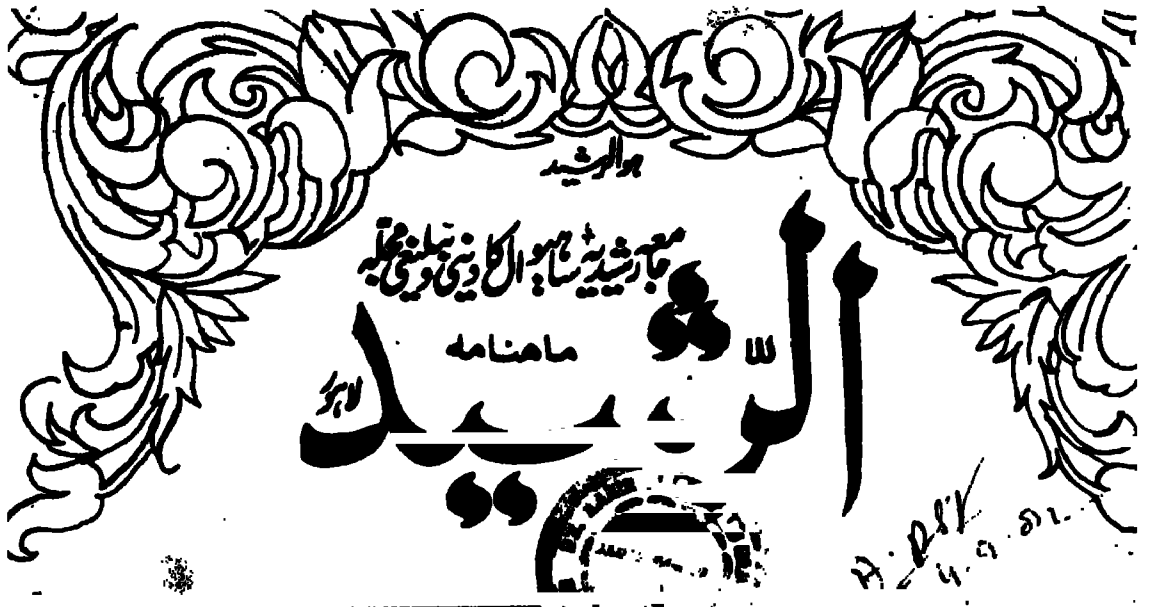 ہو الرشید
جامعہ رشیدیہ ساہیوال کا دینی و تبلیغی مجلہ
ماھنامہ
الرّشید
لاہور